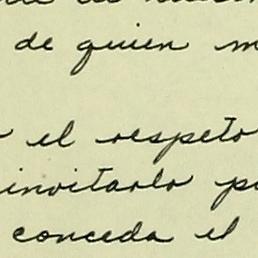 de quien
el respeto
invitarlo
conceda el